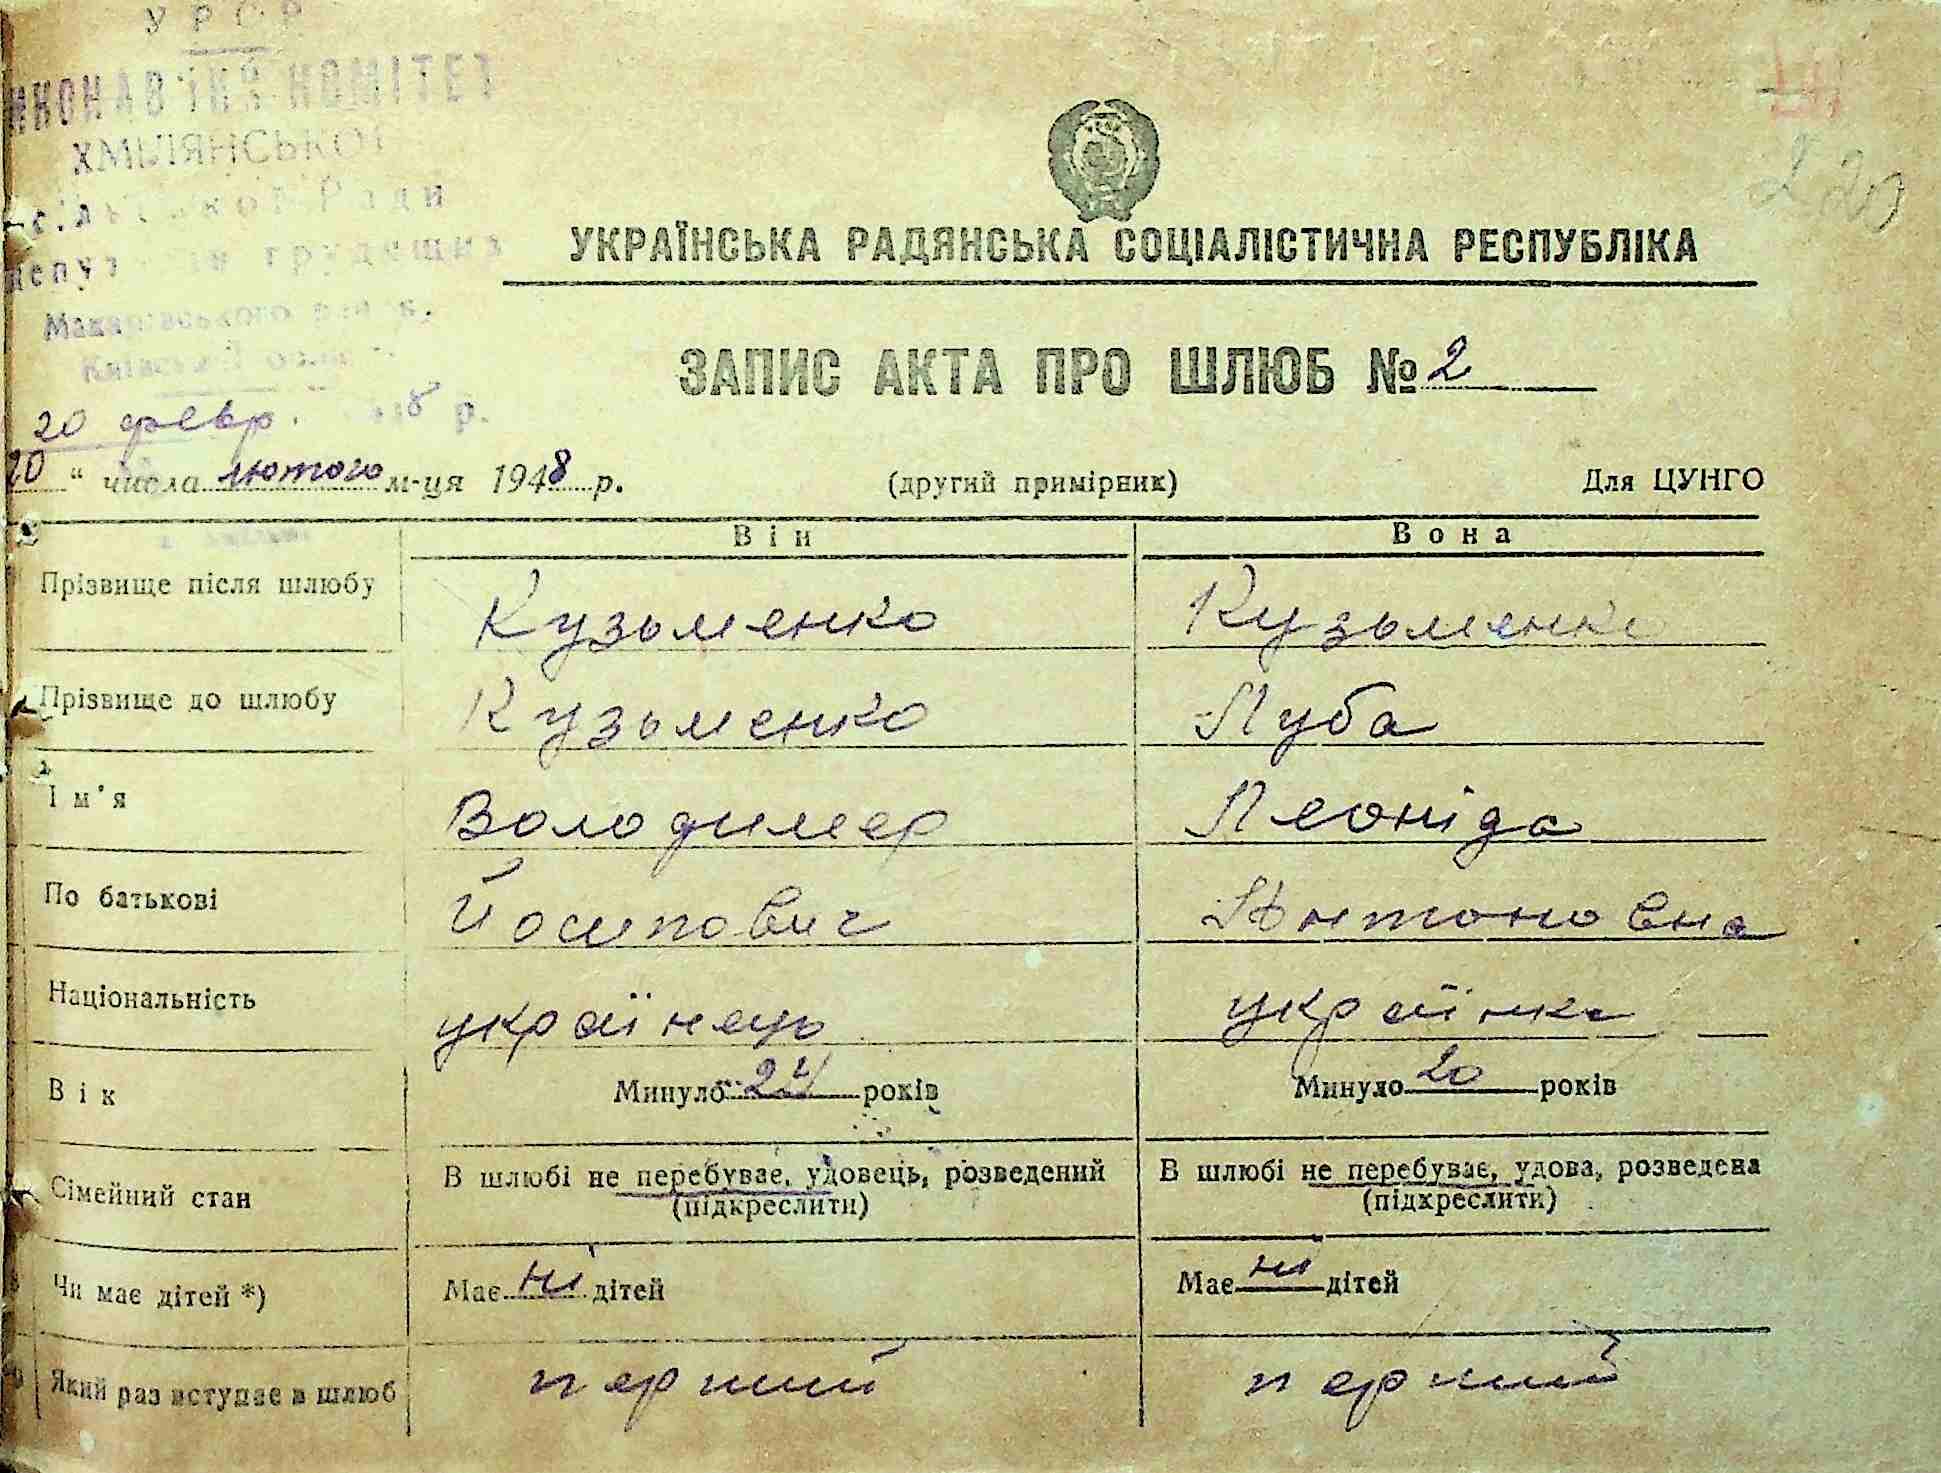 УРСР
ВИКОНАВЧИЙ КОМІТЕТ
ХМІЛЯНСЬКОЇ
сільської Ради
депутатів трудящих
Макарівського району
Київської области
20 февр. 1948 р.
УКРАЇНСЬКА РАДЯНСЬКА СОЦІАЛІСТИЧНА РЕСПУБЛІКА
ЗАПИС АКТА ПРО ШЛЮБ № 2
20 " числа лютого м-ця 1948 р. (другий примірник) Для ЦУНГО
Він Вона
Прізвище після шлюбу Кузьменко Кузьменко
Прізвище до шлюбу Кузьменко Луба
Ім'я Володимер Леоніда
По батькові Йосипович Антоновна
Національність українець українка
Вік Минуло 24 років Минуло 20 років
Сімейний стан В шлюбі не перебуває, удовець, розведений В шлюбі не перебуває, удова, розведена
(підкреслити) (підкреслити)
Чи має дітей *) Має ні дітей Має ні дітей
Який раз вступає в шлюб перший перший